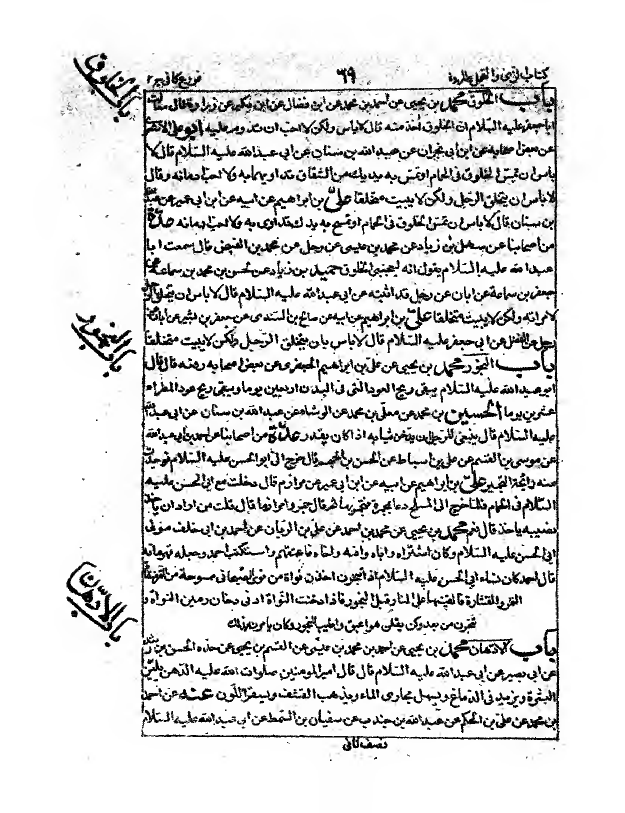 كتاب الزي والتجمل والمروة ٦٩ فروع كافي ج ٢
باب الخلوق
باب الخلوق محمد بن يحيى عن احمد بن محمد عن ابن فضال عن ابن بكير عن زرارة قال سألت
ابا جعفر عليه السلام عن الخلوق اخذ منه قال لا باس ولكن لا احب ان تدوم عليه ابو علي الاشعري
عن بعض اصحابه عن ابن ابي نجران عن عبد الله بن سنان عن ابي عبد الله عليه السلام قال لا
باس ان تمس الخلوق في الحمام او تمس به يدك من الشقاق تداويهما به ولا احب ادمانه وقال
لا باس ان يتخلق الرجل ولكن لا يبيت متخلقا علي بن ابراهيم عن ابيه عن ابن ابي عمير عن عبد الله
بن سنان قال لا باس ان تمس الخلوق في الحمام او تمسح به يدك تداوى به ولا احب ادمانه عدة
من اصحابنا عن سهل بن زياد عن محمد بن عيسى عن رجل عن محمد بن الفيض قال سمعت ابا
عبد الله عليه السلام يقول انه ليعجبني الخلوق حميد بن زياد عن الحسن بن محمد بن سماعة عن
جعفر بن سماعة عن ابان عن رجل قد اثبته عن ابي عبد الله عليه السلام قال لا باس ان يتخلق الرجل
لامراته ولكن لا يبيت متخلقا علي بن ابراهيم عن ابيه عن صالح بن السندي عن جعفر بن بشير عن ابان عن
عن ابي جعفر عليه السلام قال لا باس بان يتخلق الرجل ولكن لا يبيت متخلقا
باب البخور
باب البخور محمد بن يحيى عن علي بن ابراهيم الجعفري عن بعض اصحابه رفعه قال قال
ابو عبد الله عليه السلام يبقى ريح العود التي في البدن اربعين يوما ويبقى ريح عود المطراة
عشرين يوما الحسين بن محمد عن معلى بن محمد عن الوشاء عن عبد الله بن سنان عن ابي عبد الله
عليه السلام قال ينبغي للرجل ان يدخن ثيابه اذا كان يقدر عدة من اصحابنا عن احمد بن ابي عبد الله
عن موسى بن القسم عن علي بن اسباط عن الحسن بن الجهم قال خرج الي ابو الحسن عليه السلام فوجدت
منه رائحة التجمير علي بن ابراهيم عن ابيه عن ابن ابي عمير عن مرازم قال دخلت مع ابي الحسن عليه
السلام في الحمام فلما خرج الى المسلخ دعا بمجمرة فتجمر بها ثم قال جمروا مرازما قال قلت من اراد ان ياخذ
نصيبه ياخذ قال نعم محمد بن يحيى عن محمد بن احمد عن علي بن الريان عن احمد بن ابي خلف مولى
ابي الحسن عليه السلام وكان اشتراه واباه وامه واخاه فاعتقهم واستكتب احمد وجعله قهرمانه
قال احمد كان نساء ابي الحسن عليه السلام اذا تبخرن اخذن نواة من نوى الصيحاني ممسوحة من التمر
القينها على النار قبل البخور فاذا دخنت النواة ادنى دخان رمين النواة و
تبخرن من بعد وكن يقلن هو اعبق واطيب للبخور وكان يامرهن بذلك
باب الادهان
باب الادهان محمد بن يحيى عن احمد بن محمد بن عيسى عن القسم بن يحيى عن جده الحسن بن راشد
عن ابي بصير عن ابي عبد الله عليه السلام قال قال امير المومنين صلوات الله عليه الدهن يلين
البشرة ويزيد في الدماغ ويسهل مجارى الماء ويذهب القشف ويسفر اللون عنه عن احمد
بن محمد عن علي بن الحكم عن عبد الله بن جندب عن سفيان بن السمط عن ابي عبد الله عليه السلام